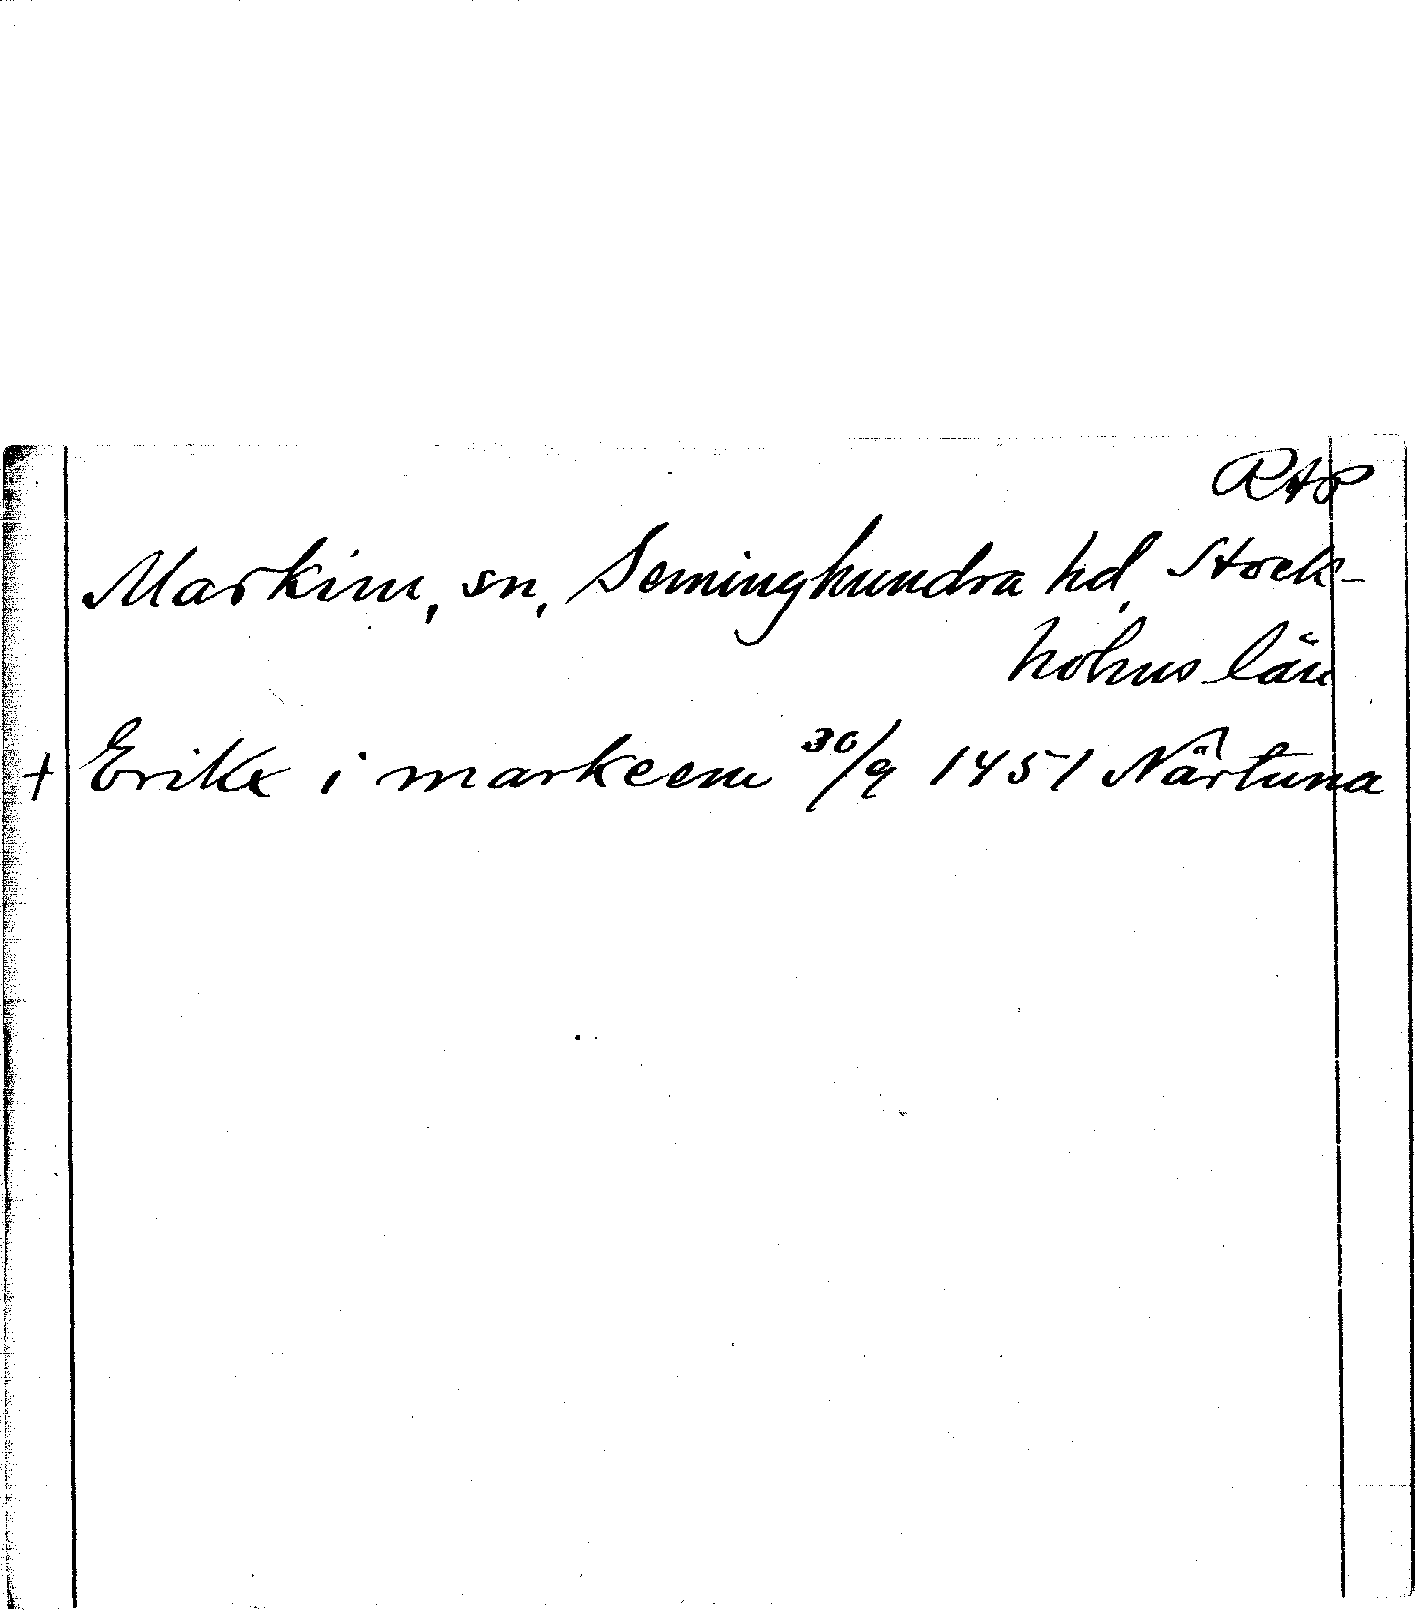 RAP
Markim, sn, Seminghundra hd, Stock-
holms län
+ Erike i markeem 30/9 1451 Närtuna